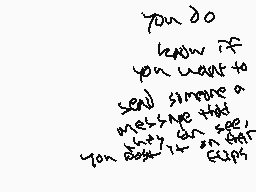 you do
know if
you want to
send someone a
message that
they can see,
you post it on their
clips